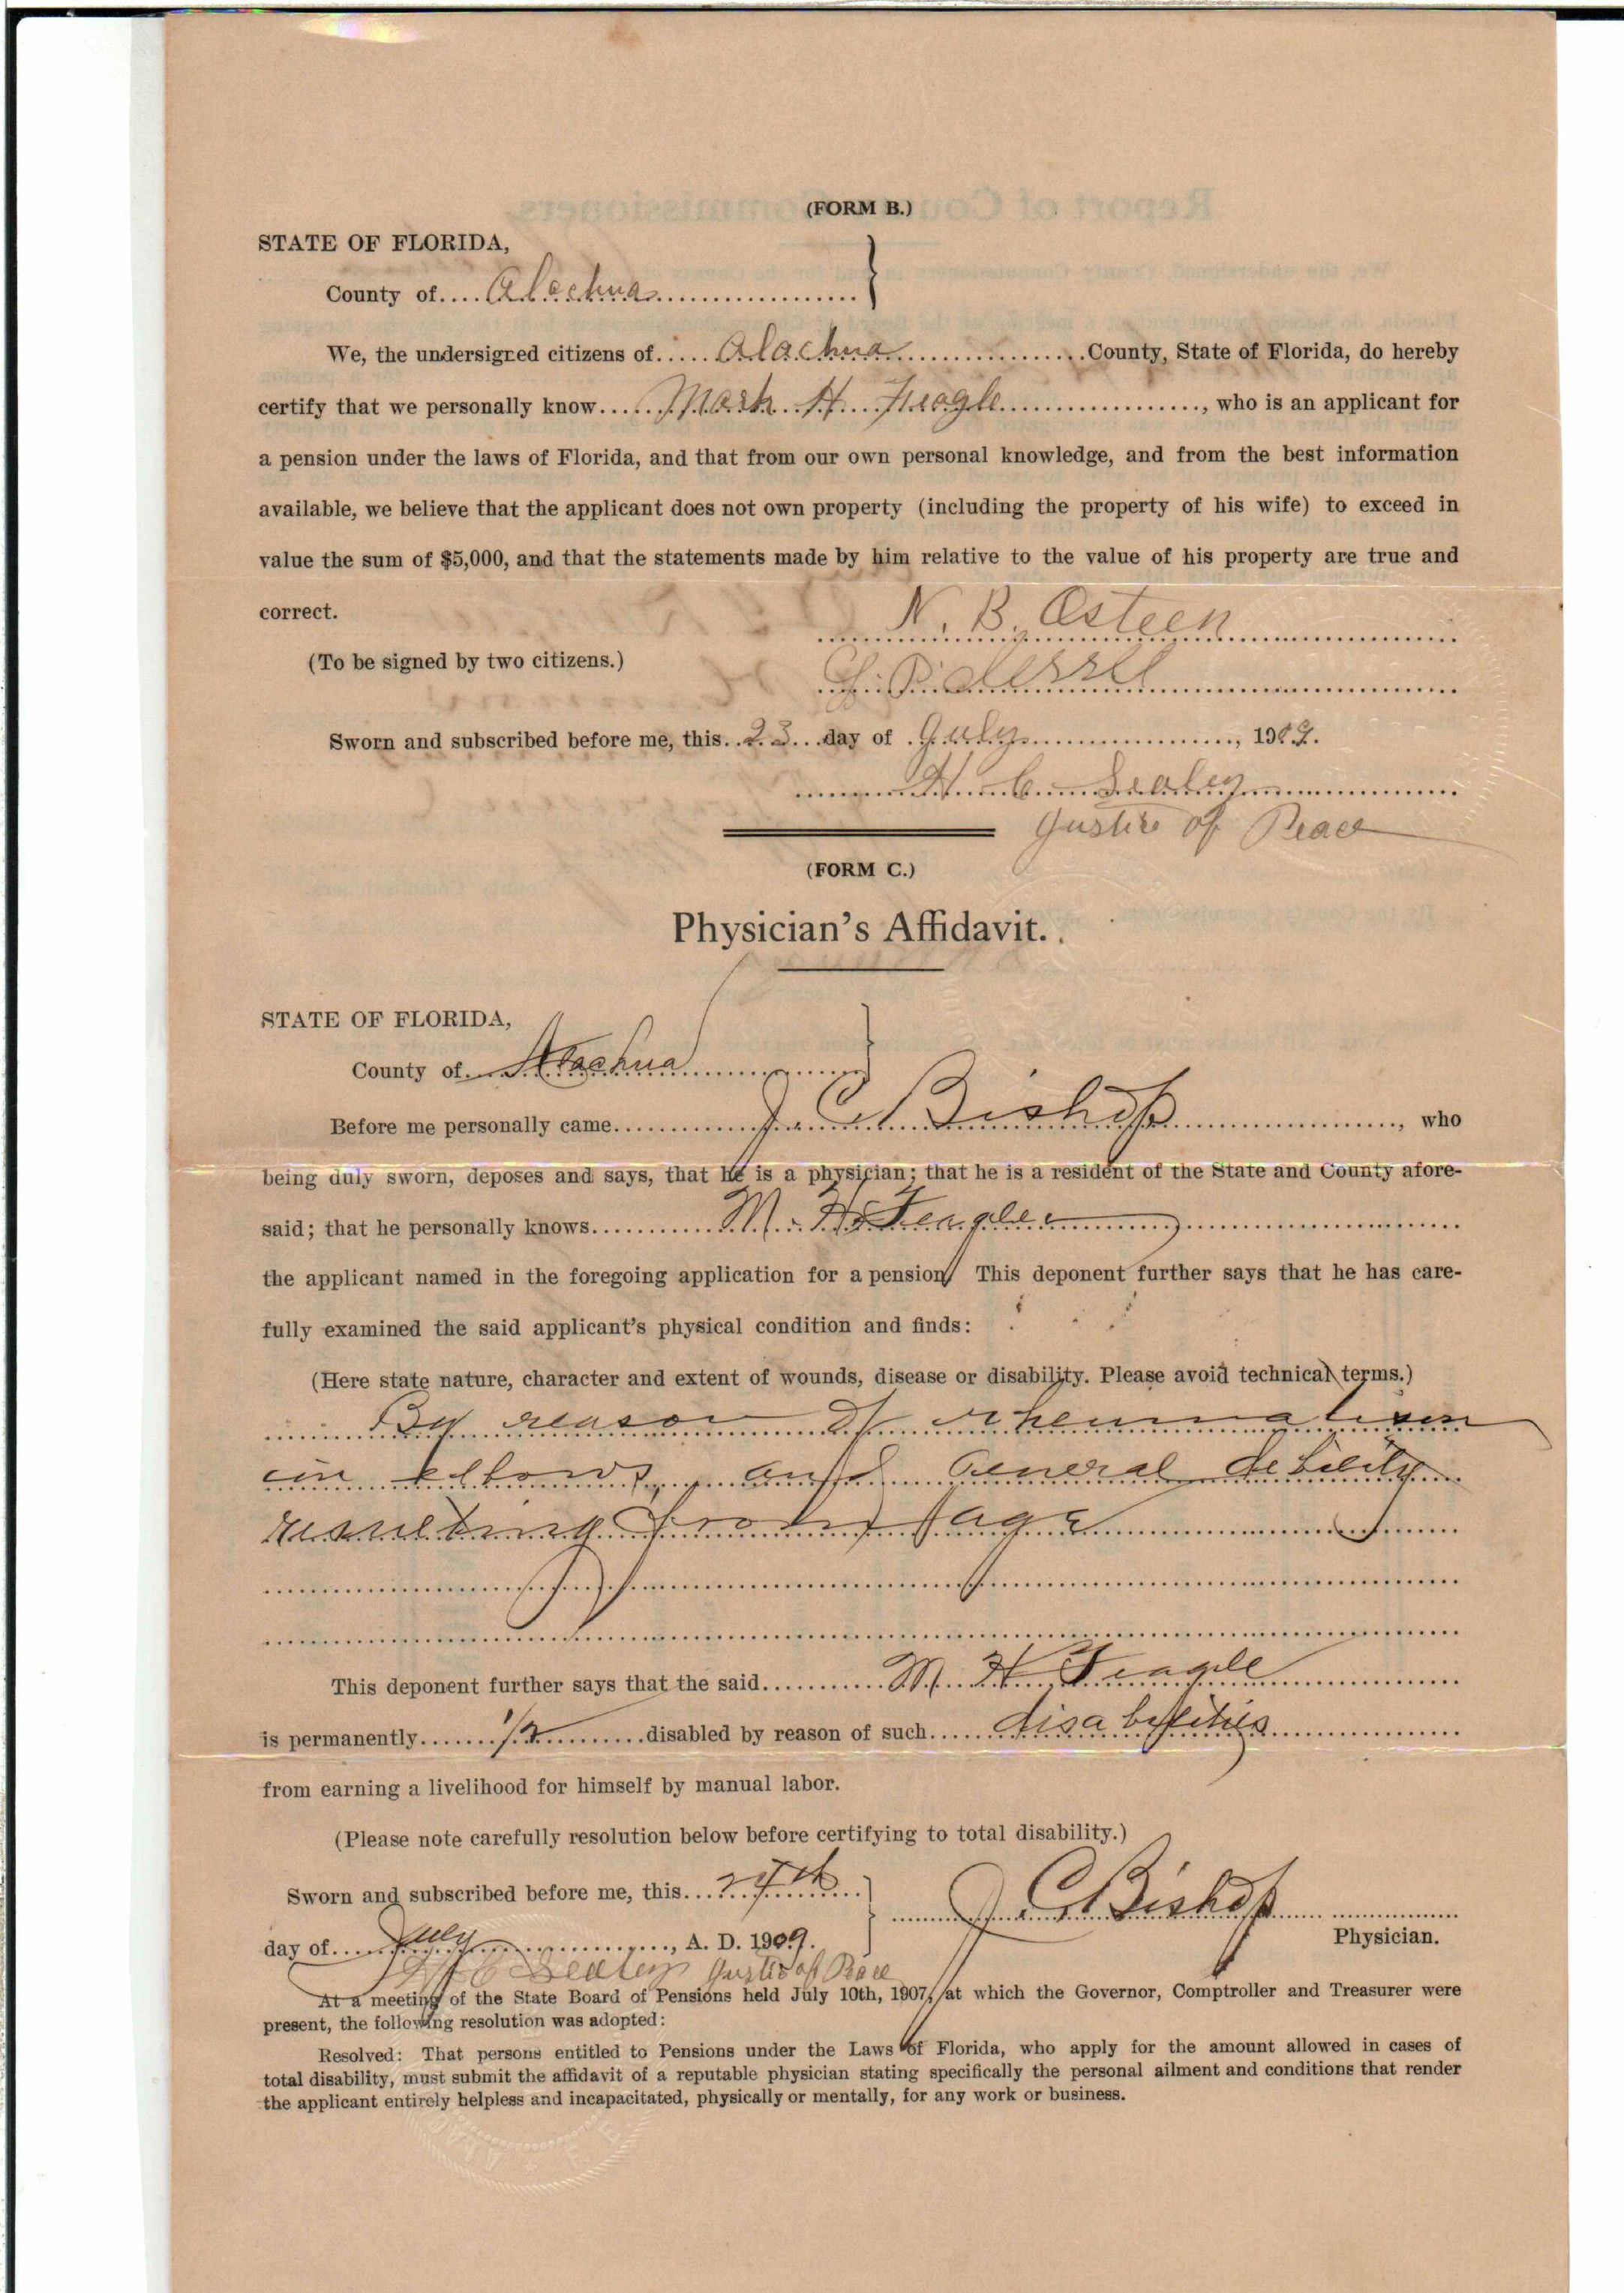 (FORM B.)
STATE OF FLORIDA,
County of.... Alachua
We, the undersigned citizens of..... Alachua ..... County, State of Florida, do hereby
certify that we personally know..... Mark H. Feagle ....., who is an applicant for
a pension under the laws of Florida, and that from our own personal knowledge, and from the best information
available, we believe that the applicant does not own property (including the property of his wife) to exceed in
value the sum of $5,000, and that the statements made by him relative to the value of his property are true and
correct.
N. B. Osteen
(To be signed by two citizens.)
Sworn and subscribed before me, this.. 23 ...day of . July ....., 1909.
H. C. Sealey
Justice of Peace
(FORM C.)
Physician's Affidavit.
STATE OF FLORIDA,
County of.... Alachua
Before me personally came..... J. C. Bishop ....., who
being duly sworn, deposes and says, that he is a physician; that he is a resident of the State and County afore-
said; that he personally knows..... M. H. Feagle
the applicant named in the foregoing application for a pension. This deponent further says that he has care-
fully examined the said applicant's physical condition and finds:
(Here state nature, character and extent of wounds, disease or disability. Please avoid technical terms.)
By reason of rheumatism
in elbows, and General debility
resulting from age
This deponent further says that the said..... M. H. Feagle
is permanently..... 1/2 .....disabled by reason of such..... disabilities
from earning a livelihood for himself by manual labor.
(Please note carefully resolution below before certifying to total disability.)
Sworn and subscribed before me, this... 24th
J. C. Bishop
day of..... July ....., A. D. 1909.
Physician.
H C Sealey Justice of Peace
At a meeting of the State Board of Pensions held July 10th, 1907, at which the Governor, Comptroller and Treasurer were
present, the following resolution was adopted:
Resolved: That persons entitled to Pensions under the Laws of Florida, who apply for the amount allowed in cases of
total disability, must submit the affidavit of a reputable physician stating specifically the personal ailment and conditions that render
the applicant entirely helpless and incapacitated, physically or mentally, for any work or business.